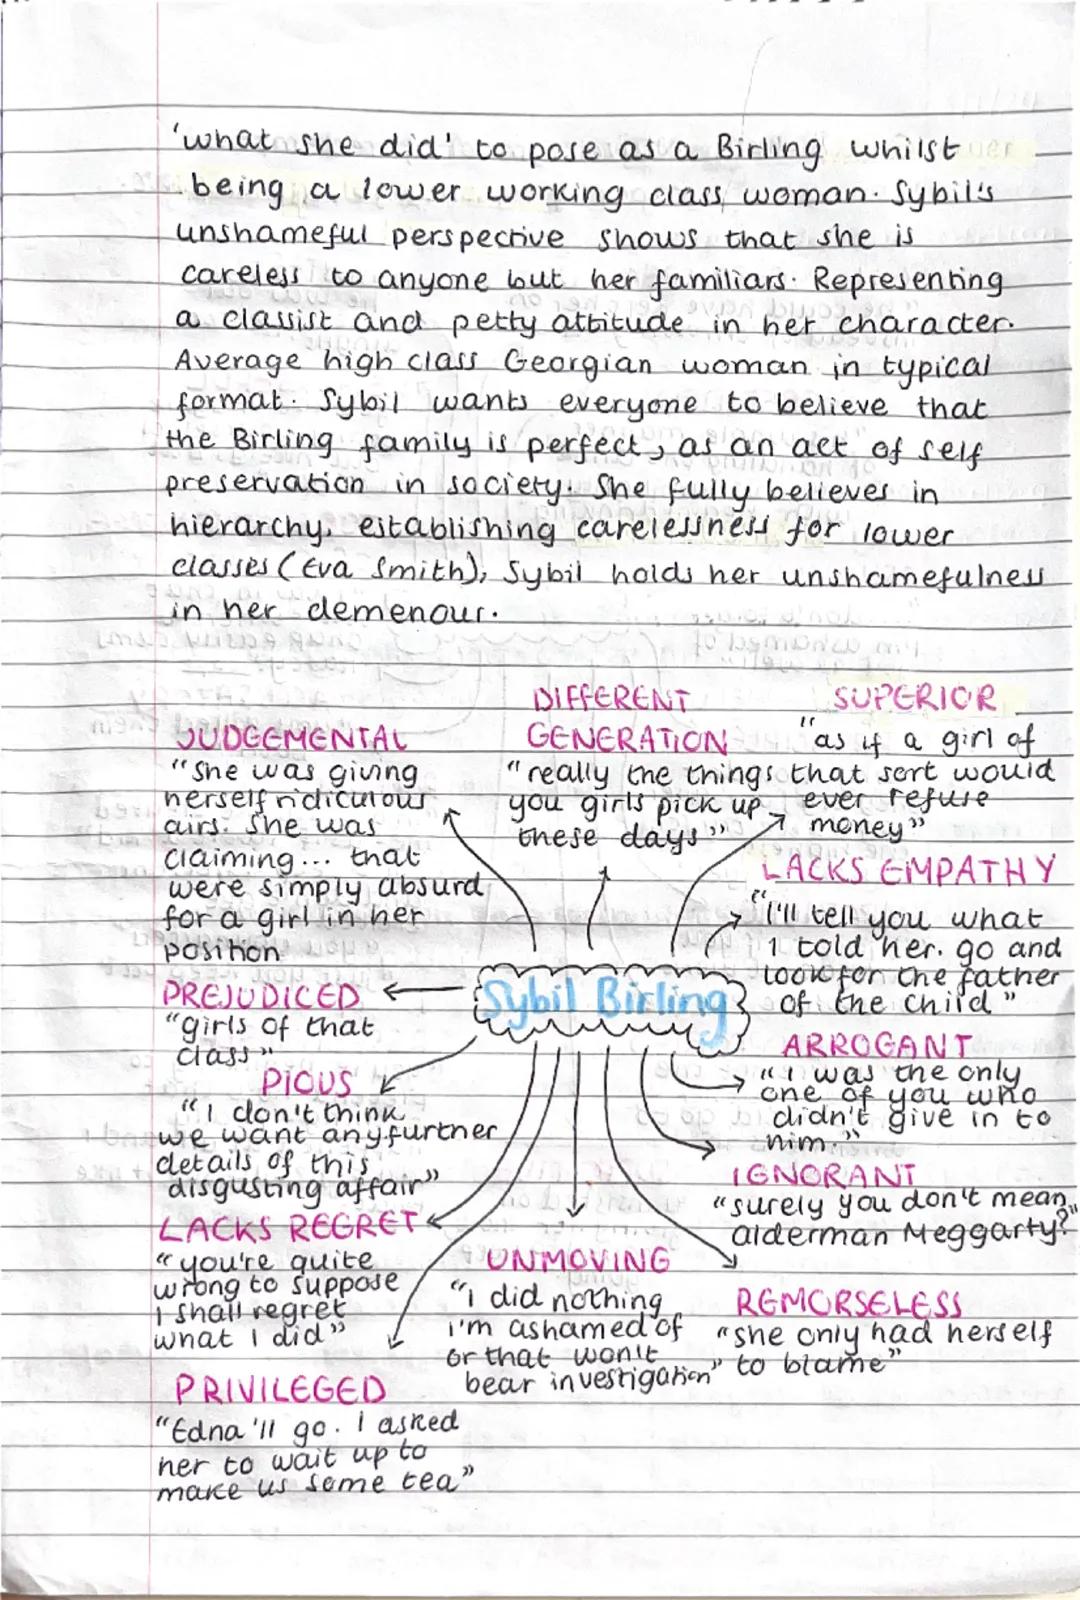 'what she did' to pose as a Birling whilst
being a lower working class woman. Sybil's
unshameful perspective shows that she is
careless to anyone but her familiars. Representing
a classist and petty attitude in her character.
Average high class Georgian woman in typical
format. Sybil wants everyone to believe that
the Birling family is perfect, as an act of self
preservation in society. She fully believes in
hierarchy, establishing carelessness for lower
classes (Eva Smith), Sybil holds her unshamefulness
in her demenour.
JUDGEMENTAL
"She was giving
herself ridiculous
airs. She was
claiming... that
were simply absurd
for a girl in her
position
DIFFERENT
GENERATION
"really the things
you girls pick up
these days"
SUPERIOR
"as if a girl of
that sort would
ever refuse
money"
LACKS EMPATHY
"I'll tell you what
I told her. go and
look for the father
of the child"
Sybil Birling
PREJUDICED
"girls of that
class"
PIOUS
"I don't think
we want any further
details of this
disgusting affair"
ARROGANT
"I was the only
one of you who
didn't give in to
him."
IGNORANT
"surely you don't mean
alderman Meggarty?"
LACKS REGRET
"you're quite
wrong to suppose
I shall regret
what I did"
UNMOVING
"I did nothing
I'm ashamed of
or that won't
bear investigation"
REMORSELESS
"she only had herself
to blame"
PRIVILEGED
"Edna'll go. I asked
her to wait up to
make us some tea"